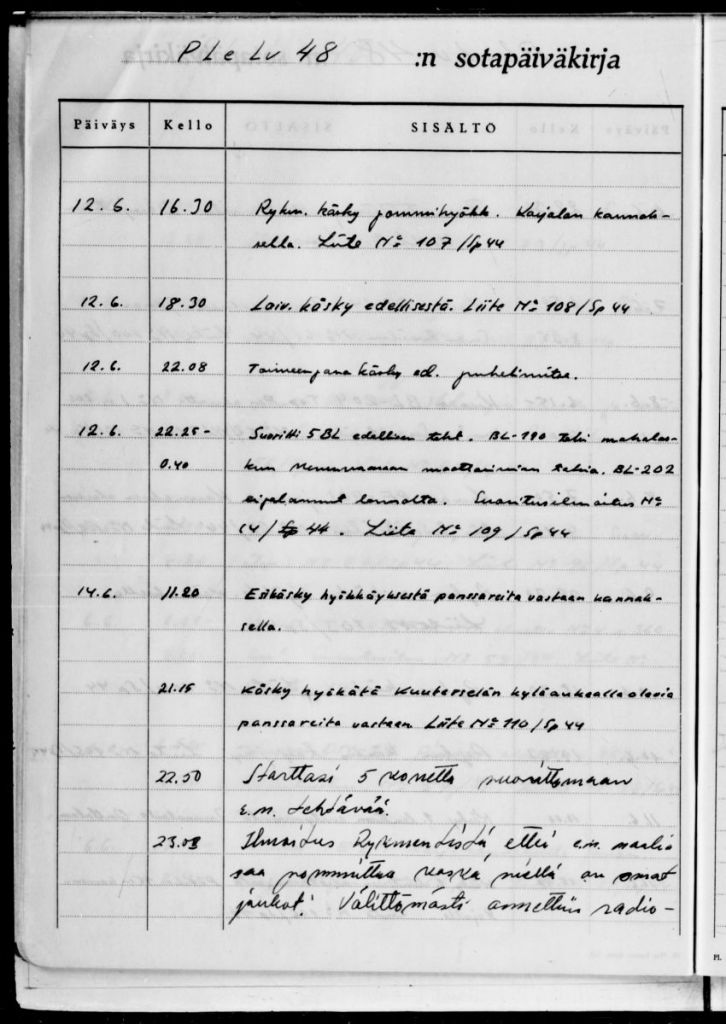 PLeLv 48 :n sotapäiväkirja
Päiväys Kello SISÄLTÖ
12.6. 16.30 Rykm. käsky pommihyökk. Karjalan kannak-
sella. Liite No 107/Sp44
12.6. 18.30 Laiv. käsky edellisestä. Liite No 108/Sp44
12.6. 22.08 Toimeenpanokäsky ed. puhelimitse.
12.6. 22.25- Suoritti 5 BL edellisen teht. BL-190 teki mahalas-
0.40 kun moottorivian takia. BL-202
ei palannut lennolta. Suoritusilmoitus No
14/Sp 44. Liite No 109/Sp44
14.6. 11.20 Esikäsky hyökkäyksestä panssareita vastaan kannak-
sella.
21.15 Käsky hyökätä Kuuterselän kyläaukealla olevia
panssareita vastaan Liite No 110/Sp44
22.50 Starttasi 5 konetta suorittamaan
e.m. tehtävää.
23.03 Ilmoitus Rykmentistä, ettei e.m. maalia
saa pommittaa koska siellä on omat
joukot! Välittömästi annettiin radio-
Pl.